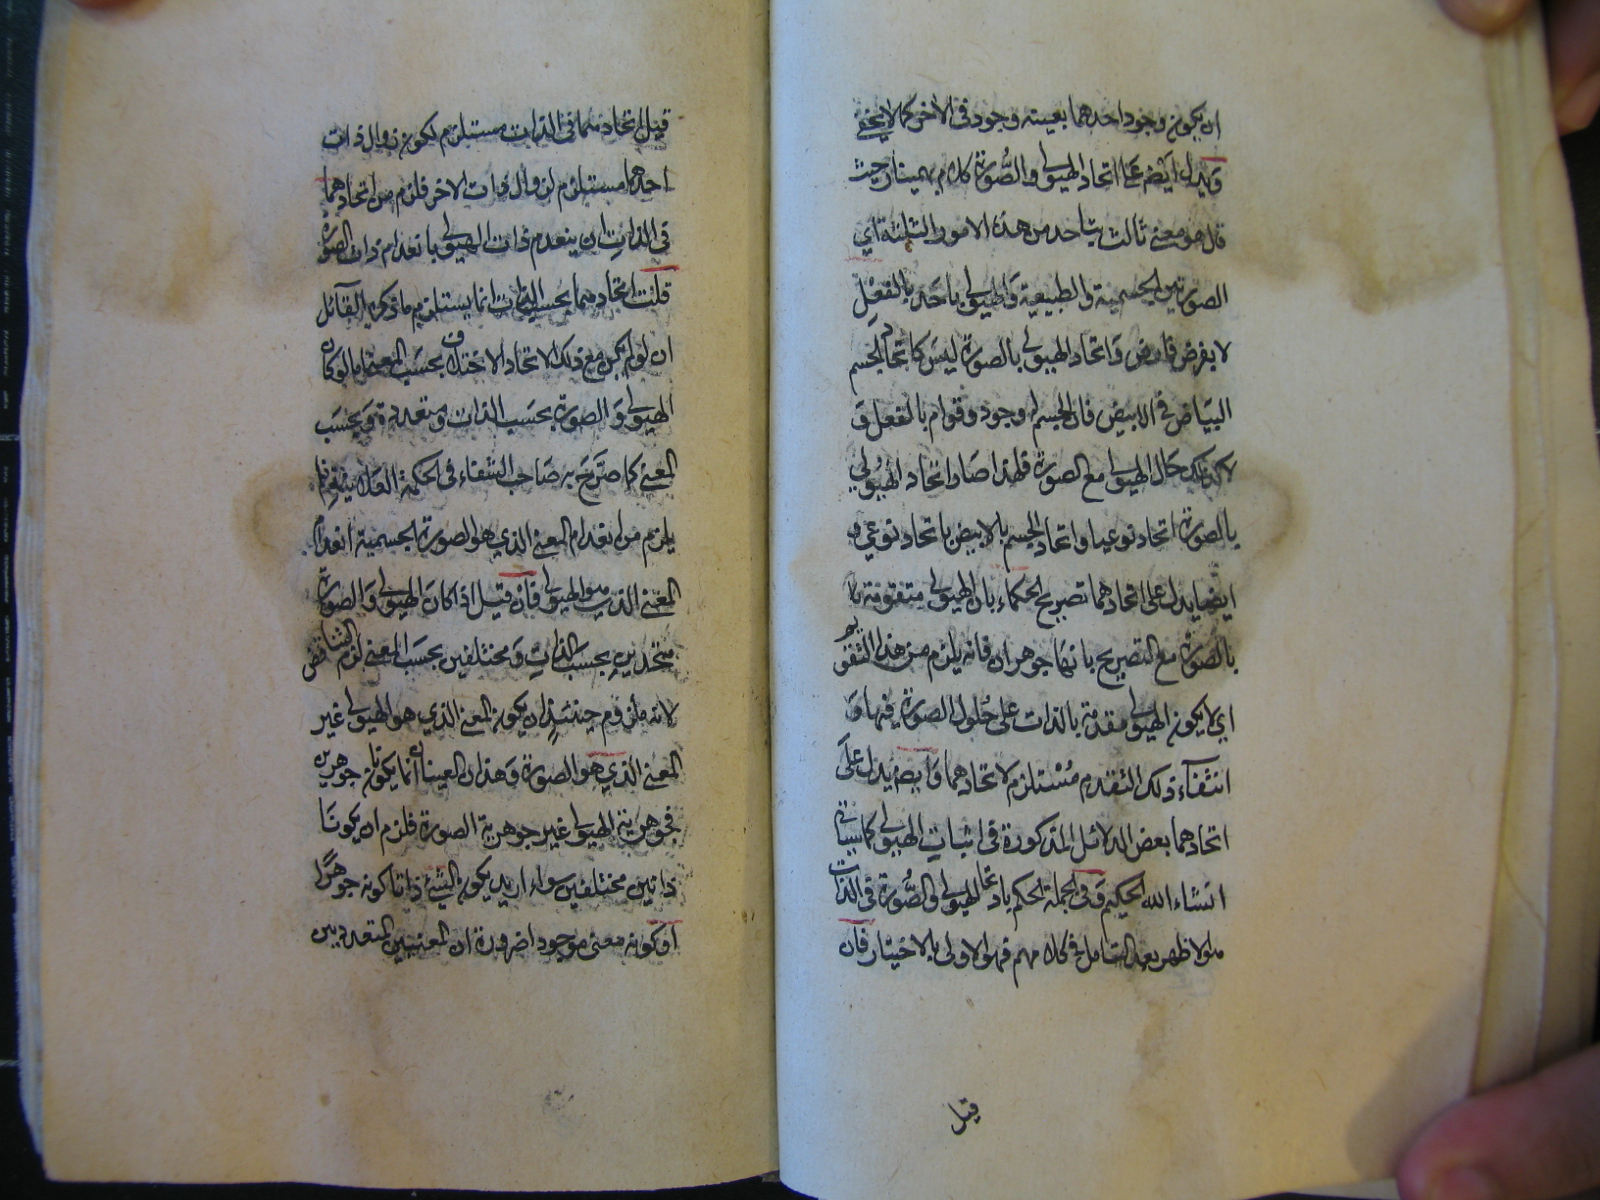 ان يكون وجود احدهما بعينه وجود في الاخر كما لا يخفى
ويدل ايضم على اتحاد الهيولى والصورة كلام بهمنيار حيث
قال هو معنى ثالث يتاحد من هذه الامور الثلثة اي
الصورتين الجسمية والطبيعية والهيولى باحد بالفعل
لا بفرض فارض واتحاد الهيولى بالصورة ليس كاتحاد الجسم
البياض في الابيض فان الجسم له وجود وقوام بالفعل و
لا كذلك حال الهيولى مع الصورة فلهذا صار اتحاد الهيولى
بالصورة اتحاد نوعيا واتحاد الجسم بالابيض باتحاد نوعي و
ايضا يدل على اتحادهما تصريح الحكماء بان الهيولى متقومة با
بالصورة مع التصريح بانهما جوهران فانه يلزم من هذا التقويم
اي لا يكون الهيولى مقدمة بالذات على حلول الصورة فيها و
انتفآء ذلك التقدم مستلزم لاتحادهما وايضم يدل على
اتحادهما بعض الدلائل المذكورة في اثبات الهيولى كما سياتي
انشاء الله الحكيم وفي الجملة الحكم باتحاد الهيولى والصورة في الذات
هو الاظهر بعد التامل في كلامهم فهو الاولى بالاختيار فان
قيل
قيل اتحادهما في الذات مستلزم لكون زوال ذات
احدهما مستلزم لزوال ذات الاخر فلزم من اتحادهما
في الذات ان ينعدم ذات الهيولى بانعدام ذات الصورة
قلت اتحادهما بحسب الذات انما يستلزم ما ذكره القآئل
ان لو لم يكن مع ذلك الاتحاد الاختلاف بحسب المعنى اما لو كان
الهيولى والصورة بحسب الذات ومتعددة وبحسب
المعنى كما صرح به صاحب الشفاء في الحكمة العلائية فما
يلزم من انعدام المعنى الذي هو الصورة الجسمية انعدام
المعنى الذي هو الهيولى فان قيل اذا كان الهيولى والصورة
متحدين بحسب الذات ومختلفين بحسب المعنى لزم التناقض
لانه ملزوم حينئذ ان يكون المعنى الذي هو الهيولى غير
المعنى الذي هو الصورة وهذان المعنيان انما يكونان جوهرين
فجوهرية الهيولى غير جوهرية الصورة فلزم ان يكونا
ذاتين مختلفين سواء اريد بكون الشئ ذاتا كونه جوهرا
او كونه معنى موجودا ضرورة ان المعنيين المتعددين